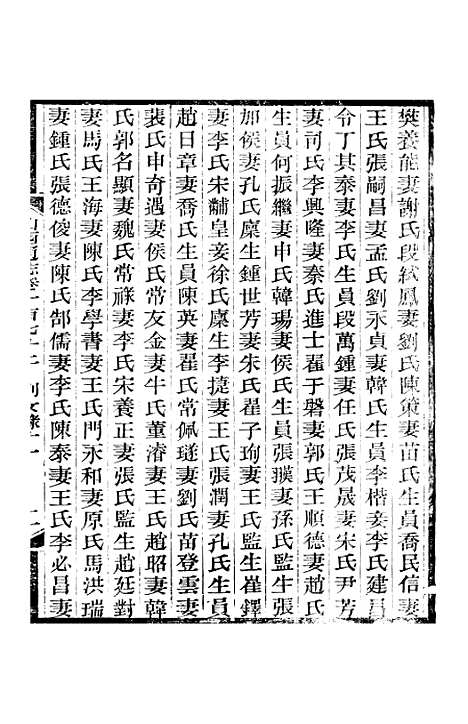 樊養能妻謝氏段絨鳳妻劉氏陳策妻苗氏生員喬民信妻
王氏張嗣昌妻孟氏劉永貞妻韓氏生員李楷妾李氏建昌
令丁其泰妻李氏生員段萬鍾妻任氏張茂晟妻宋氏尹芳
妻司氏李興隆妻秦氏進士翟于磐妻郭氏王順德妻趙氏
生員何振繼妻申氏韓瑒妻侯氏生員張蟆妻孫氏監生張
加俟妻孔氏廩生鍾世芳妻朱氏翟子珣妻王氏監生崔鐸
妻李氏宋黼皇妾徐氏廩生李㨗妻王氏張潤妻孔氏生員
趙日章妻喬氏生員陳英妻翟氏常佩璲妻劉氏苗登雲妻
裴氏申奇遇妻侯氏常友金妻牛氏董濬妻王氏趙昭妻韓
氏郭名顯妻魏氏常祿妻李氏宋養正妻張氏監生趙廷對
妻馬氏王海妻陳氏李學書妻王氏門永和妻原氏馬洪瑞
妻鍾氏張德俊妻陳氏郜儒妻李氏陳泰妻王氏李必昌妻